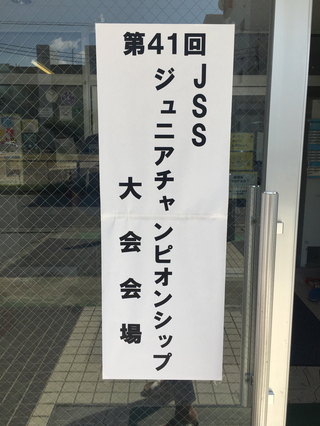 第41回
JSS
ジュニアチャンピオンシップ
大会会場